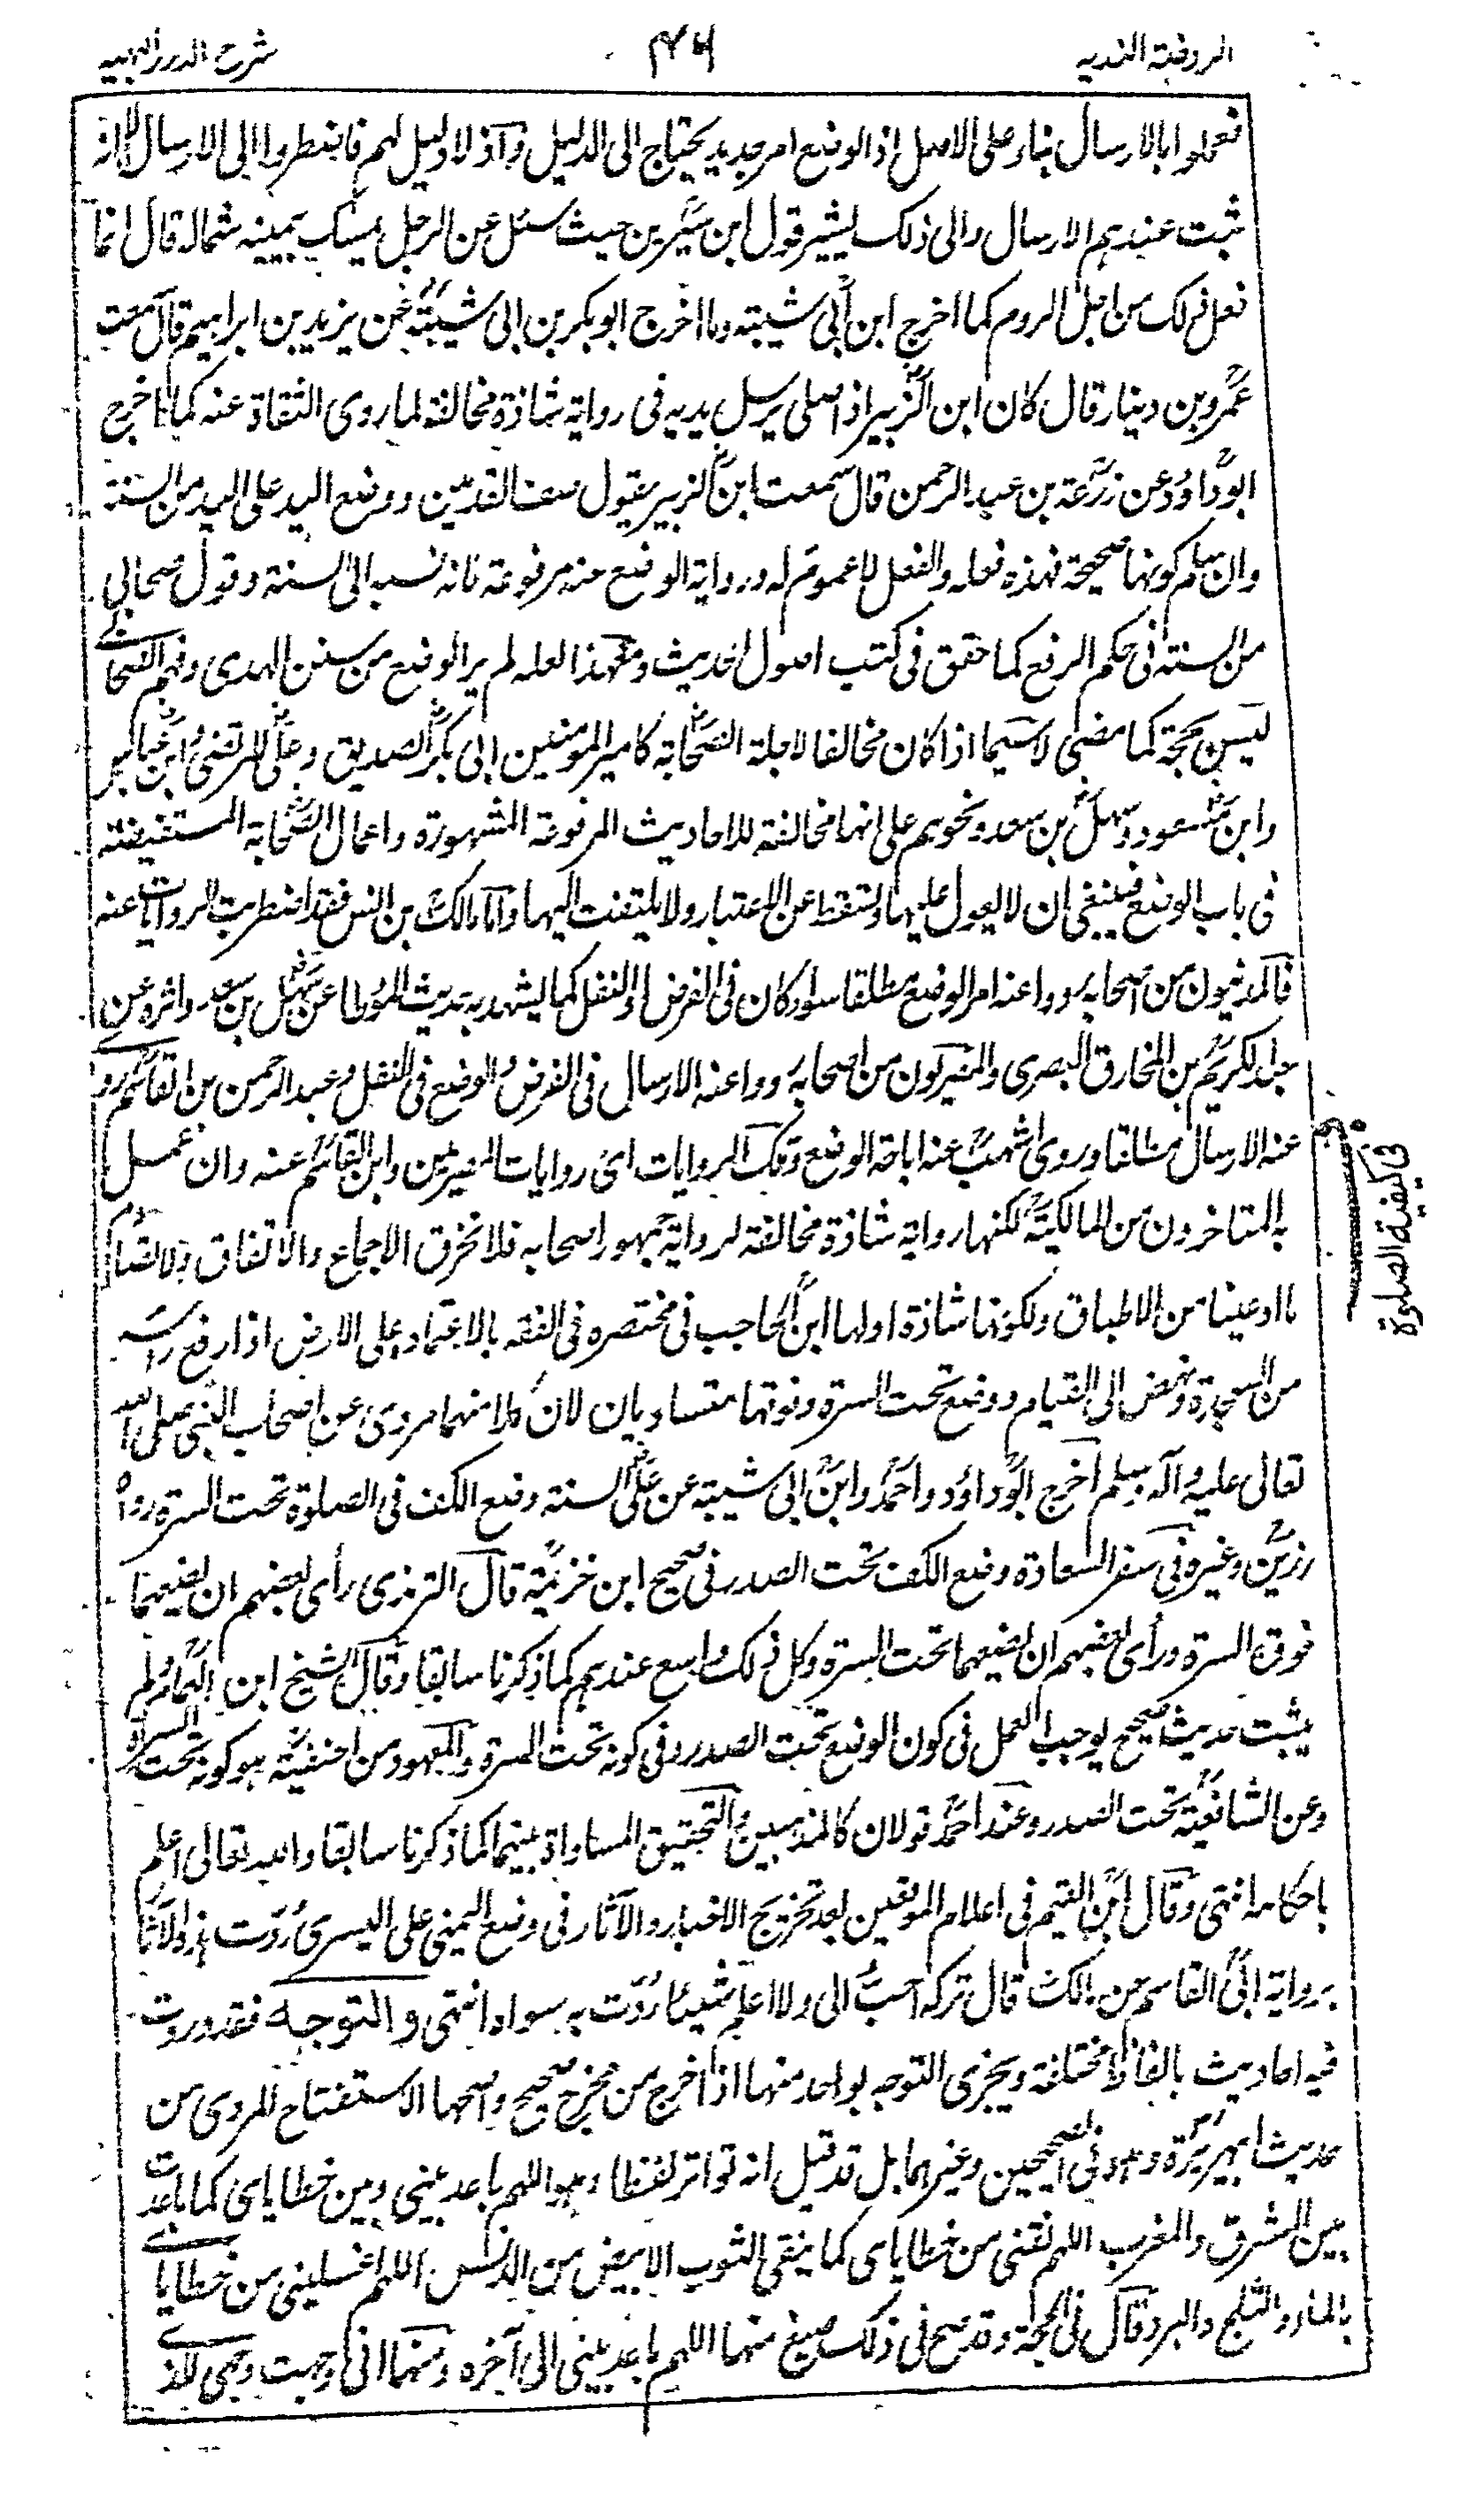 الروضة الندية
٤٦
شرح الدرر البهية
فعملوا بالارسال بناء على الاصل اذ الوضع امر جديد يحتاج الى الدليل واذ لا دليل لهم فاضطروا الى الارسال لا انه
ثبت عندهم الارسال والى ذلك يشير قول ابن سيرين حيث سئل عن الرجل يمسك بيمينه شماله قال انما
فعل ذلك من اجل الروم كما اخرج ابن أبي شيبة وما اخرج ابو بكر بن ابى شيبة عن يزيد بن ابراهيم قال سمعت
عمرو بن دينار قال كان ابن الزبير اذا صلى يرسل يديه فى رواية شاذة مخالفة لما روى الثقاة عنه كما اخرج
ابو داود عن زرعة بن عبد الرحمن قال سمعت ابن الزبير يقول صف القدمين ووضع اليد على اليد من السنة
وان سلم كونها صحيحة فهذه فعله والفعل لا عموم له ورواية الوضع عنه مرفوعة فانه نسبه الى السنة وقول صحابي
من السنة فى حكم الرفع كما حقق فى كتب اصول الحديث ومع هذا لعله لم ير الوضع من سنن الهدى وفهم الصحابي
ليس بحجة كما مضى لا سيما اذا كان مخالفا لاجلة الصحابة كامير المومنين ابى بكر الصديق وعلى المرتضى وابن عباس
وابن مسعود وسهل بن سعد ونحوهم على انها مخالفة للاحاديث المرفوعة المشهورة واعمال الصحابة المستفيضة
فى باب الوضع فينبغى ان لا يعول عليها وتسقط عن الاعتبار ولا يلتفت اليها واما مالك بن انس فقد اضطربت الروايات عنه
فالمدنيون من اصحابه رووا عنه امر الوضع مطلقا سواء كان فى الفرض او النفل كما يشهد به حديث المؤطا عن سهل بن سعد واثره عن
عبد الكريم بن المخارق البصرى والمصريون من اصحابه رووا عنه الارسال فى الفرض والوضع فى النفل وعبد الرحمن بن القاسم روى
عنه الارسال مطلقا وروى اشهب عنه اباحة الوضع وتلك الروايات اى روايات المصريين وابن القاسم عنه وان عمل
به المتاخرون من المالكية لكنها رواية شاذة مخالفة لرواية جمهور اصحابه فلا تخرق الاجماع والاتفاق ولا تصادم
ما ادعينا من الاطباق ولكونها شاذة اولها ابن الحاجب فى مختصره فى الفقه بالاعتماد على الارض اذا رفع راسه
من السجدة ونهض الى القيام ووضع تحت السرة وفوقها متساويان لان كلا منهما مروى عن اصحاب النبى صلى الله
تعالى عليه وآله وسلم اخرج ابو داود واحمد وابن ابى شيبة عن على السنة وضع الكف فى الصلوة تحت السرة رواه
رزين وغيره فى سفر السعادة وضع الكف تحت الصدر فى صحيح ابن خزيمة قال الترمذى رأى بعضهم ان يضيعهما
فوق السرة ورأى بعضهم ان يضعهما تحت السرة وكل ذلك واسع عندهم كما ذكرنا سابقا وقال الشيخ ابن الهمام ولم
يثبت حديث صحيح يوجب العمل فى كون الوضع تحت الصدر وفى كونه تحت السرة والمعهود من الحنفية هو كونه تحت السرة
وعن الشافعية تحت الصدر وعند احمد قولان كالمذهبين والتحقيق المساواة بينهما كما ذكرنا سابقا والله تعالى اعلم
باحكامه انتهى وقال ابن القيم فى اعلام الموقعين بعد تخريج الاخبار والآثار فى وضع اليمنى على اليسرى ردت هذه الآثار
برواية ابن القاسم عن مالك قال تركه احب الى ولا اعلم شيئا ردت به سواه انتهى والتوجه فقد وردت
فيه احاديث بالفاظ مختلفة ويجزى التوجه بواحد منها اذا خرج من مخرج صحيح واصحها الاستفتاح المروى من
حديث ابى هريرة وهو فى الصحيحين وغيرهما بل قد قيل انه تواتر لفظا وهو اللهم باعد بينى وبين خطاياى كما باعدت
بين المشرق والمغرب اللهم نقنى من خطاياى كما ينقى الثوب الابيض من الدنس اللهم اغسلنى من خطاياى
بالماء والثلج والبرد قال فى الحجة وقد صح فى ذلك صيغ منها اللهم باعد بينى الى آخره ومنها انى وجهت وجهى للذى
فى كيفية الصلوة